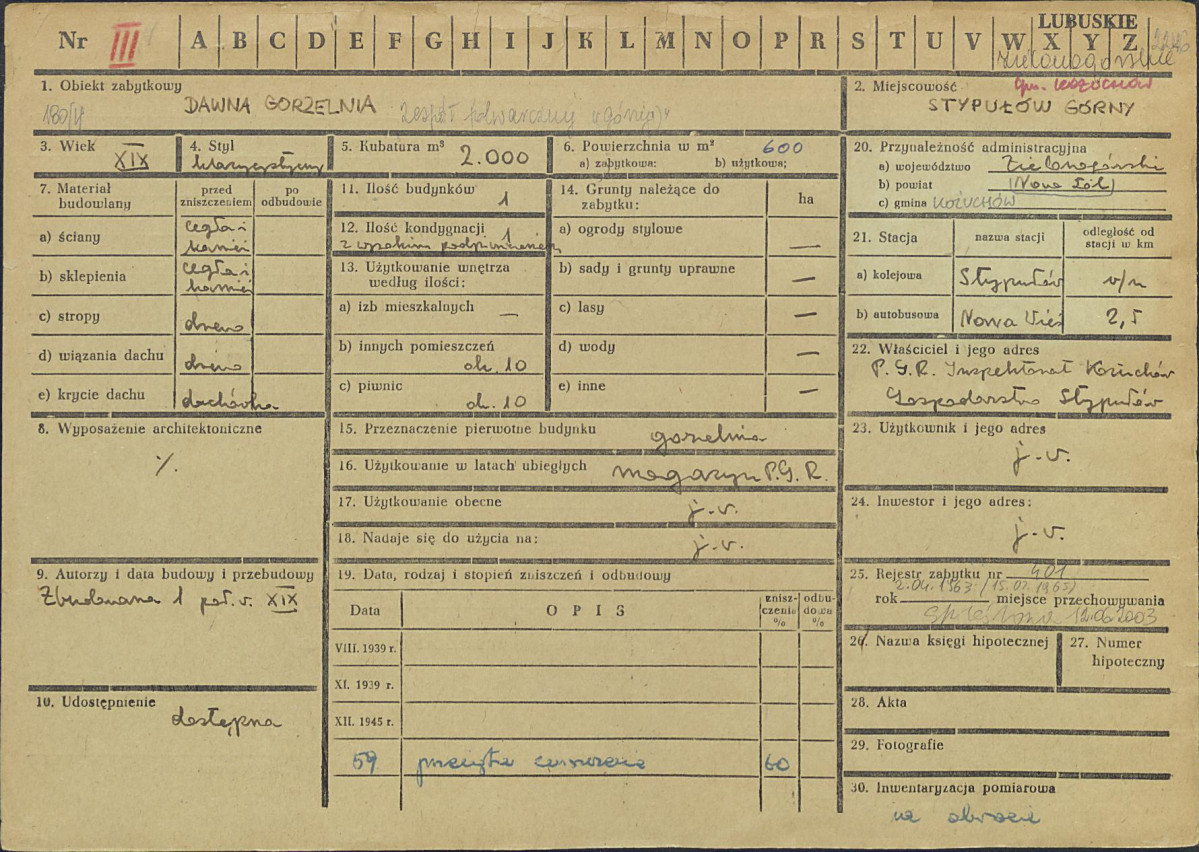 LUBUSKIE
Nr III A B C D E F G H I J K L M N O P R S T U V W X Y Z
zielonogórskie
1. Obiekt zabytkowy
DAWNA GORZELNIA zespół folwarczny
2. Miejscowość gm. KOŻUCHÓW
STYPUŁÓW GÓRNY
3. Wiek
XIX
4. Styl
klasycystyczny
5. Kubatura m³
2.000
6. Powierzchnia w m² 600
a) zabytkowa: b) użytkowa:
7. Materiał budowlany
przed zniszczeniem
po odbudowie
a) ściany cegła i kamień
b) sklepienia cegła i kamień
c) stropy drewno
d) wiązania dachu drewno
e) krycie dachu dachówka
8. Wyposażenie architektoniczne
9. Autorzy i data budowy i przebudowy
Zbudowana 1 poł. w. XIX
10. Udostępnienie
dostępna
11. Ilość budynków
1
12. Ilość kondygnacji
1
z wysokim podpiwniczeniem
13. Użytkowanie wnętrza
według ilości:
a) izb mieszkalnych —
b) innych pomieszczeń
ok. 10
c) piwnic
ok. 10
14. Grunty należące do
zabytku:
ha
a) ogrody stylowe —
b) sady i grunty uprawne —
c) lasy —
d) wody —
e) inne —
15. Przeznaczenie pierwotne budynku gorzelnia
16. Użytkowanie w latach ubiegłych magazyn P.G.R.
17. Użytkowanie obecne j.w.
18. Nadaje się do użycia na: j.w.
19. Data, rodzaj i stopień zniszczeń i odbudowy
Data OPIS zniszczenia % odbudowa %
VIII. 1939 r.
XI. 1939 r.
XII. 1945 r.
59 60
20. Przynależność administracyjna
a) województwo Zielonogórskie
b) powiat (Nowa Sól)
c) gmina KOŻUCHÓW
21. Stacja
nazwa stacji
odległość od
stacji w km
a) kolejowa Stypułów
b) autobusowa Nowa Wieś 2,5
22. Właściciel i jego adres
P.G.R. Inspektorat Kożuchów
Gospodarstwo Stypułów
23. Użytkownik i jego adres
j.w.
24. Inwestor i jego adres:
j.w.
25. Rejestr zabytku nr 401
2.04.1963 / (15.02.1965)
rok miejsce przechowywania
12.06.2003
26. Nazwa księgi hipotecznej
27. Numer
hipoteczny
28. Akta
29. Fotografie
30. Inwentaryzacja pomiarowa